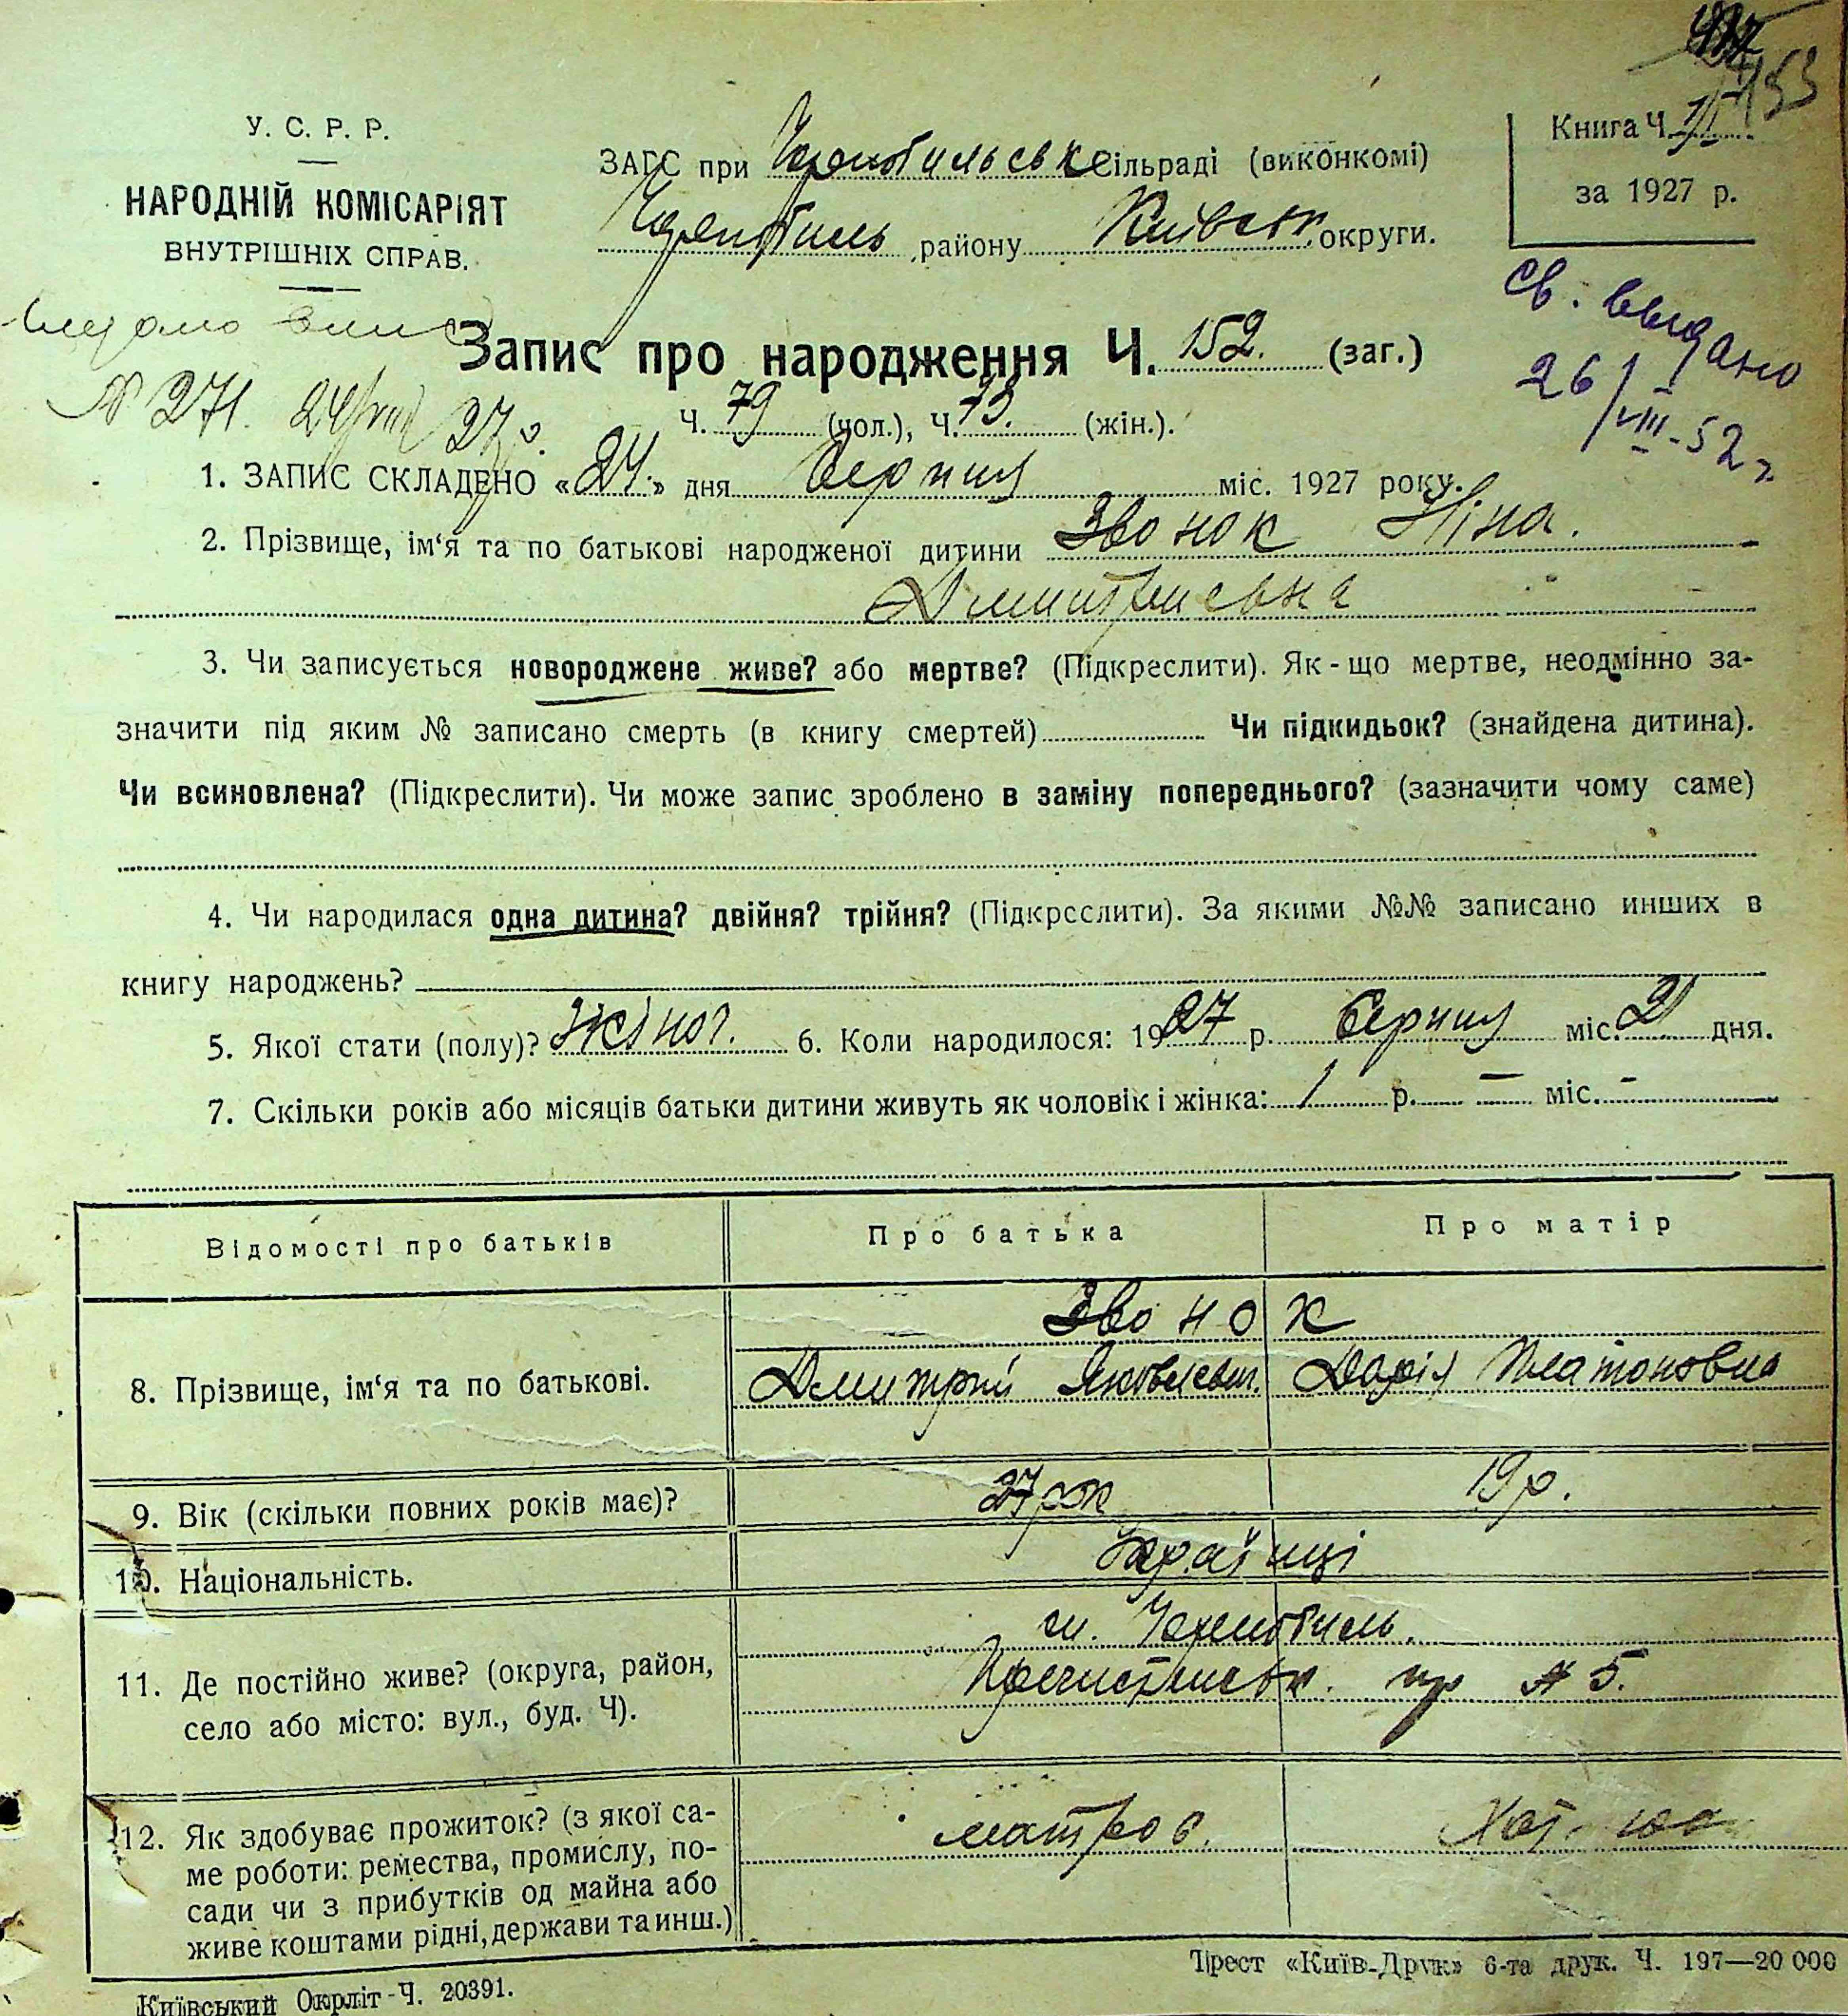 153
У. С. Р. Р.
НАРОДНІЙ КОМІСАРІЯТ
ВНУТРІШНІХ СПРАВ.
ЗАГС при Чорнобильськ Сільраді (виконкомі)
Чорнобиль району Київськ. округи.
Книга Ч.
за 1927 р.
св. выдано
26/VIII-52 г.
видано
Запис про народження Ч. 152. (заг.)
№ 271. 24/VIII 27 р.
Ч. 79 (чол.), Ч. 73. (жін.).
1. ЗАПИС СКЛАДЕНО «24» дня Серпня міс. 1927 року.
2. Прізвище, ім‘я та по батькові народженої дитини Звонок Ніна.
Дмитриевна
3. Чи записується новороджене живе? або мертве? (Підкреслити). Як-що мертве, неодмінно за-
значити під яким № записано смерть (в книгу смертей) Чи підкидьок? (знайдена дитина).
Чи всиновлена? (Підкреслити). Чи може запис зроблено в заміну попереднього? (зазначити чому саме)
4. Чи народилася одна дитина? двійня? трійня? (Підкреслити). За якими №№ записано инших в
книгу народжень?
5. Якої стати (полу)? Жіноч. 6. Коли народилося: 1927 р. Серпня міс. 21 дня.
7. Скільки років або місяців батьки дитини живуть як чоловік і жінка: 1 р. — міс. -
Відомості про батьків
Про батька
Про матір
8. Прізвище, ім‘я та по батькові.
Звонок
Дмитрий Яковлевич.
Дарія Платоновна
9. Вік (скільки повних років має)?
27 рок
19 р.
10. Національність.
Українці
11. Де постійно живе? (округа, район,
село або місто: вул., буд. Ч).
м. Чорнобиль.
пр № 5.
12. Як здобуває прожиток? (з якої са-
ме роботи: ремества, промислу, по-
сади чи з прибутків од майна або
живе коштами рідні, держави та инш.)
матрос.
Київський Окрліт-Ч. 20391.
Трест «Київ-Друк» 6-та друк. Ч. 197—20 000